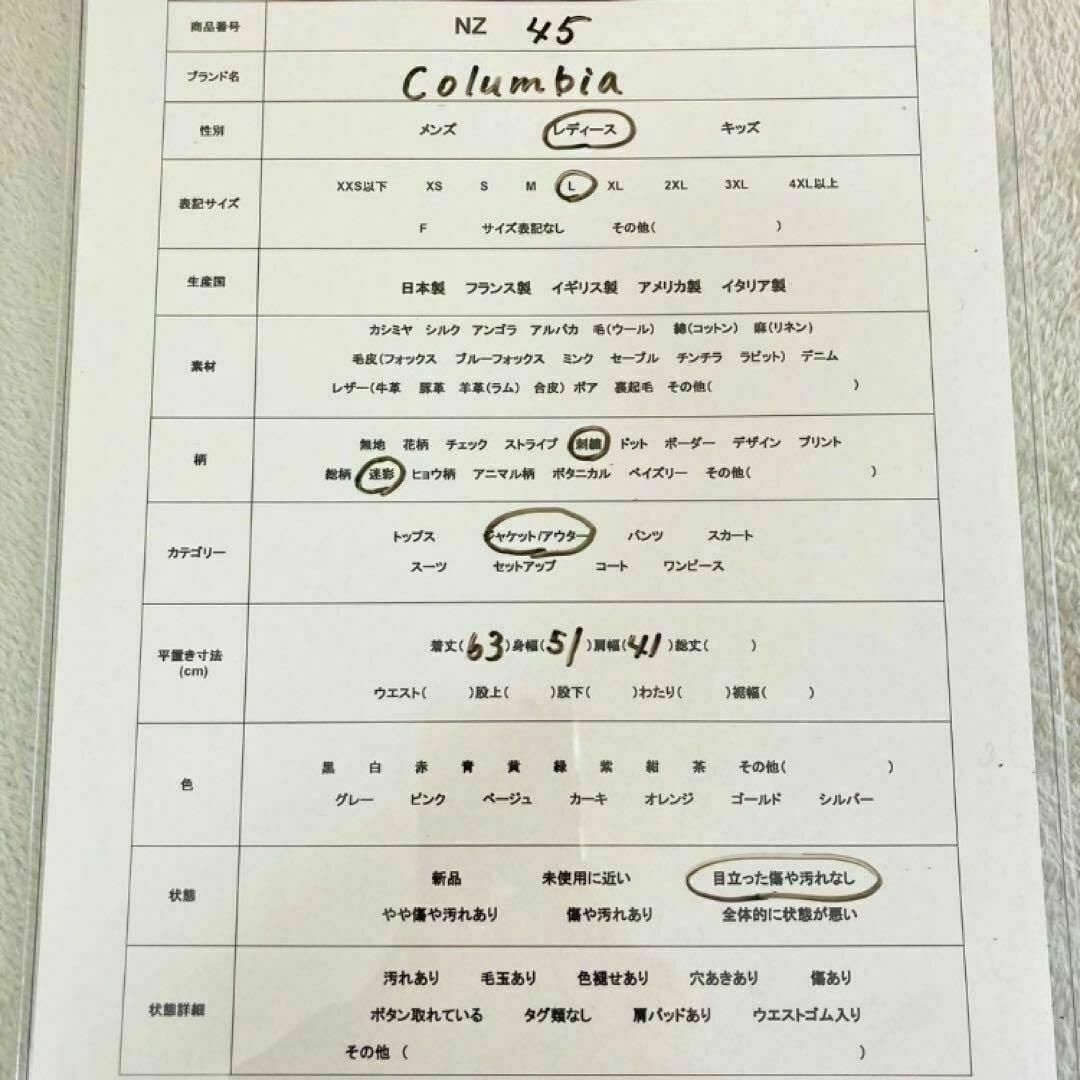 商品番号 NZ 45
ブランド名 Columbia
性別 メンズ レディース キッズ
表記サイズ XXS以下 XS S M L XL 2XL 3XL 4XL以上
F サイズ表記なし その他( )
生産国 日本製 フランス製 イギリス製 アメリカ製 イタリア製
素材 カシミヤ シルク アンゴラ アルパカ 毛(ウール) 綿(コットン) 麻(リネン)
毛皮(フォックス ブルーフォックス ミンク セーブル チンチラ ラビット) デニム
レザー(牛革 豚革 羊革(ラム) 合皮) ボア 裏起毛 その他( )
柄 無地 花柄 チェック ストライプ 刺繍 ドット ボーダー デザイン プリント
総柄 迷彩 ヒョウ柄 アニマル柄 ボタニカル ペイズリー その他( )
カテゴリー トップス ジャケット/アウター パンツ スカート
スーツ セットアップ コート ワンピース
平置き寸法 着丈(63)身幅(51)肩幅(41)総丈( )
(cm) ウエスト( )股上( )股下( )わたり( )裾幅( )
色 黒 白 赤 青 黄 緑 紫 紺 茶 その他( )
グレー ピンク ベージュ カーキ オレンジ ゴールド シルバー
状態 新品 未使用に近い 目立った傷や汚れなし
やや傷や汚れあり 傷や汚れあり 全体的に状態が悪い
状態詳細 汚れあり 毛玉あり 色褪せあり 穴あきあり 傷あり
ボタン取れている タグ類なし 肩パッドあり ウエストゴム入り
その他 ( )